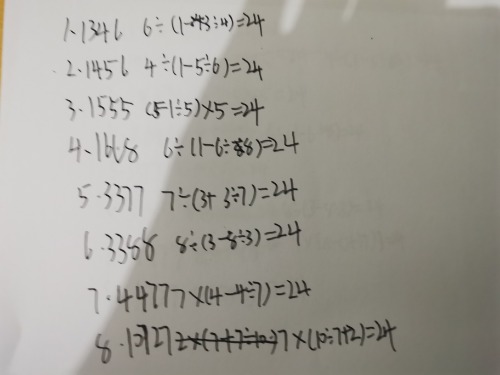 1.1346 6÷(1-3÷4)=24
2.1456 4÷(1-5÷6)=24
3.1555 (5-1÷5)×5=24
4.1668 6÷(1-6÷8)=24
5.3377 7÷(3+3÷7)=24
6.3388 8÷(3-8÷3)=24
7.4477 7×(4-4÷7)=24
8.10727 7×(10÷7+2)=24